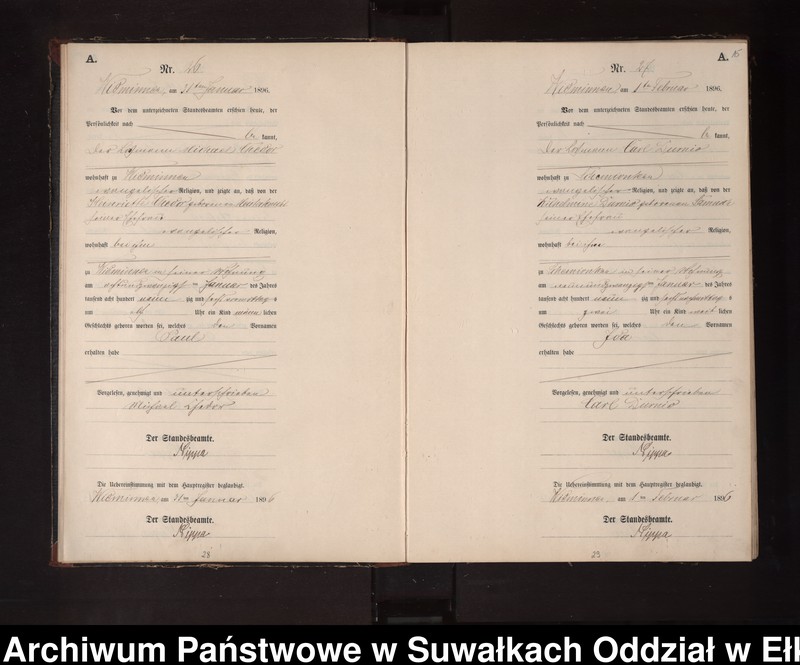 A.
Nr. 26
Widminnen am 31ten Januar 1896.
Vor dem unterzeichneten Standesbeamten erschien heute, der
Persönlichkeit nach
be kannt,
der Losmann Michael
wohnhaft zu Widminnen
evangelischer Religion, und zeigte an, daß von der
geborenen
seiner Ehefrau
evangelischer Religion,
wohnhaft bei ihm
zu Widminnen in seiner Wohnung
am Januar des Jahres
tausend acht hundert neun zig und sechs
um elf Uhr ein Kind männ lichen
Geschlechts geboren worden sei, welches den Vornamen
Paul
erhalten habe
Vorgelesen, genehmigt und unterschrieben
Michael
Der Standesbeamte.
Nippa
Die Uebereinstimmung mit dem Hauptregister beglaubigt.
Widminnen am 31ten Januar 1896
Der Standesbeamte.
Nippa
28
A. 15
Nr. 27
Widminnen am 1ten Februar 1896.
Vor dem unterzeichneten Standesbeamten erschien heute, der
Persönlichkeit nach
be kannt,
der Losmann Carl
wohnhaft zu
evangelischer Religion, und zeigte an, daß von der
Wilhelmine geborenen
seiner Ehefrau
evangelischer Religion,
wohnhaft bei ihm
zu in seiner Wohnung
am neunundzwanzigsten Januar des Jahres
tausend acht hundert neun zig und sechs
um zwei Uhr ein Kind weib lichen
Geschlechts geboren worden sei, welches den Vornamen
Ida
erhalten habe
Vorgelesen, genehmigt und unterschrieben
Carl
Der Standesbeamte.
Nippa
Die Uebereinstimmung mit dem Hauptregister beglaubigt.
Widminnen, am 1ten Februar 1896
Der Standesbeamte.
Nippa
29
Archiwum Państwowe w Suwałkach Oddział w Ełk